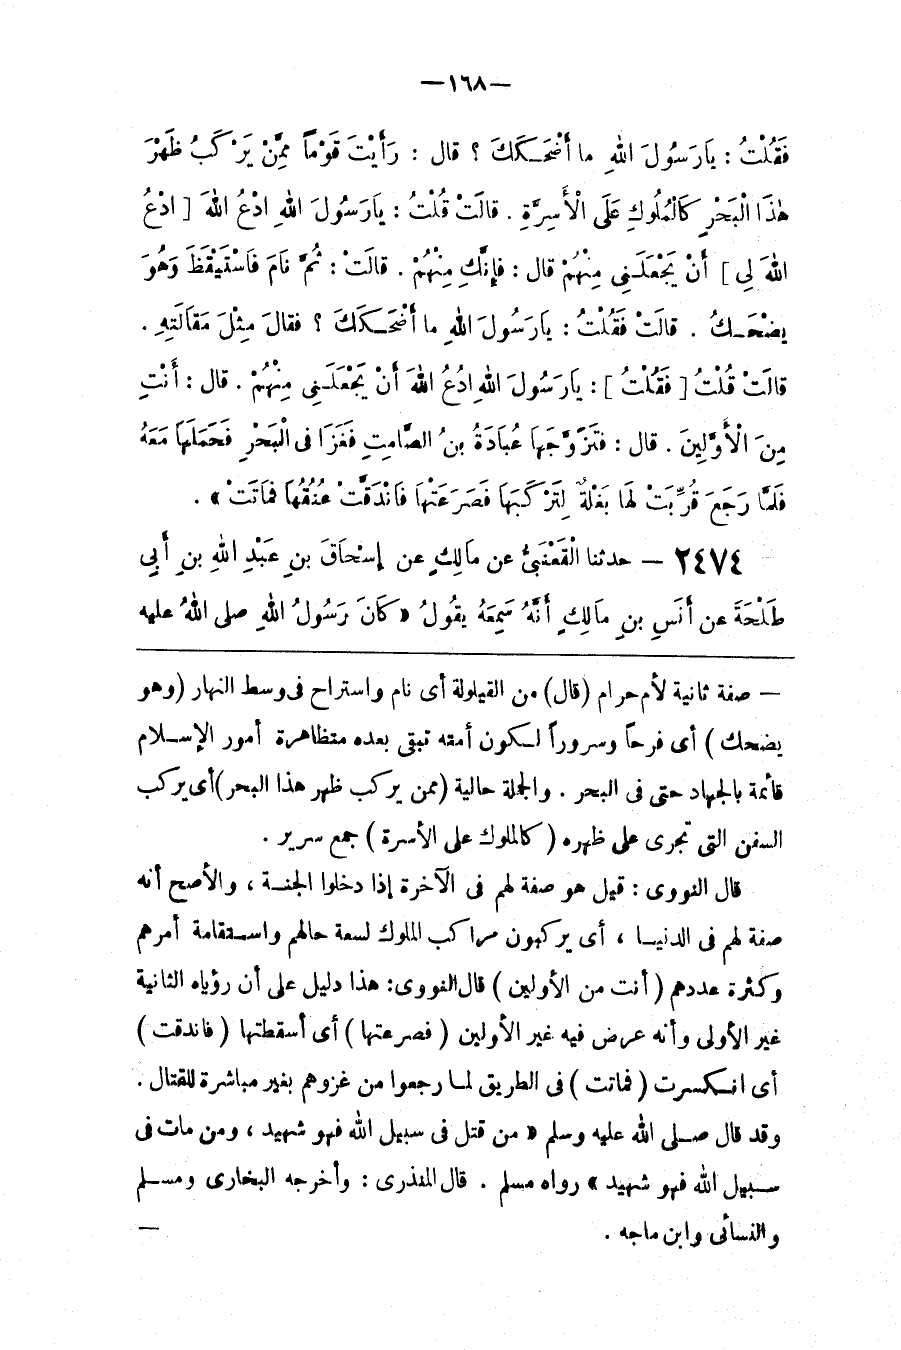 —١٦٨—
فَقُلْتُ : يَارَسُولَ اللهِ ما أَضْحَكَكَ ؟ قال : رَأَيْتَ قَوْماً مِمَّنْ يَرْكَبُ ظَهْرَ
هٰذَا الْبَحْرِ كَالْمُلُوكِ عَلَى الْأَسِرَّةِ . قالَتْ قُلْتُ : يَارَسُولَ اللهِ ادْعُ اللهَ [ ادْعُ
اللهَ لِي ] أَنْ يَجْعَلَنِى مِنْهُمْ قال : فإِنَّكِ مِنْهُمْ . قالَتْ : ثُمَّ نَامَ فَاسْتَيْقَظَ وَهُوَ
يضْحَكُ . قالَتْ فَقُلْتُ : يَارَسُولَ اللهِ ما أَضْحَكَكَ ؟ فقالَ مِثْلَ مَقَالَتِهِ .
قالَتْ قُلْتُ [ فَقُلْتُ ] : يَارَسُولَ اللهِ ادُعُ اللهَ أَنْ يَجْعَلَنِى مِنْهُمْ . قال : أَنْتِ
مِنَ الْأَوَّلِينَ . قال : فتَزَوَّجَهَا عُبَادَةُ بنُ الصَّامِتِ فَغَزَا فى الْبَحْرِ فَحَمَلَهَا مَعَهُ
فَلمَّا رَجَعَ قُرِّبَتْ لَهَا بَغْلَةٌ لِتَرْكَبَهَا فَصَرَعَتْهَا فَانْدَقَّتْ عُنُقُهَا فمَاتَتْ » .
٢٤٧٤ — حدثنا الْقَعْنَبِيُّ عن مَالِكٍ عن إِسْحَاقَ بنِ عَبْدِ اللهِ بنِ أَبِي
طَلْحَةَ عن أَنَسِ بنِ مَالِكٍ أَنَّهُ سَمِعَهُ يقُولُ « كَانَ رَسُولُ اللهِ صلى اللهُ عليه
— صفة ثانية لأم حرام (قال) من القيلولة أى نام واستراح فى وسط النهار (وهو
يضحك ) أى فرحاً وسروراً لكون أمته تبقى بعده متظاهرة أمور الإسلام
قائمة بالجهاد حتى فى البحر . والجملة حالية (ممن يركب ظهر هذا البحر) أى يركب
السفن التى تجرى على ظهره ( كالملوك على الأسرة ) جمع سرير .
قال النووى : قيل هو صفة لهم فى الآخرة إذا دخلوا الجنة ، والأصح أنه
صفة لهم فى الدنيا ، أى يركبون مراكب الملوك لسعة حالهم واستقامة أمرهم
وكثرة عددهم ( أنت من الأولين ) قال النووى: هذا دليل على أن رؤياه الثانية
غير الأولى وأنه عرض فيه غير الأولين ( فصرعتها ) أى أسقطتها ( فاندقت )
أى انكسرت ( فماتت ) فى الطريق لما رجعوا من غزوهم بغير مباشرة للقتال .
وقد قال صلى الله عليه وسلم « من قتل فى سبيل الله فهو شهيد ، ومن مات فى
سبيل الله فهو شهيد » رواه مسلم . قال المنذرى : وأخرجه البخارى ومسلم
والنسائى وابن ماجه . —